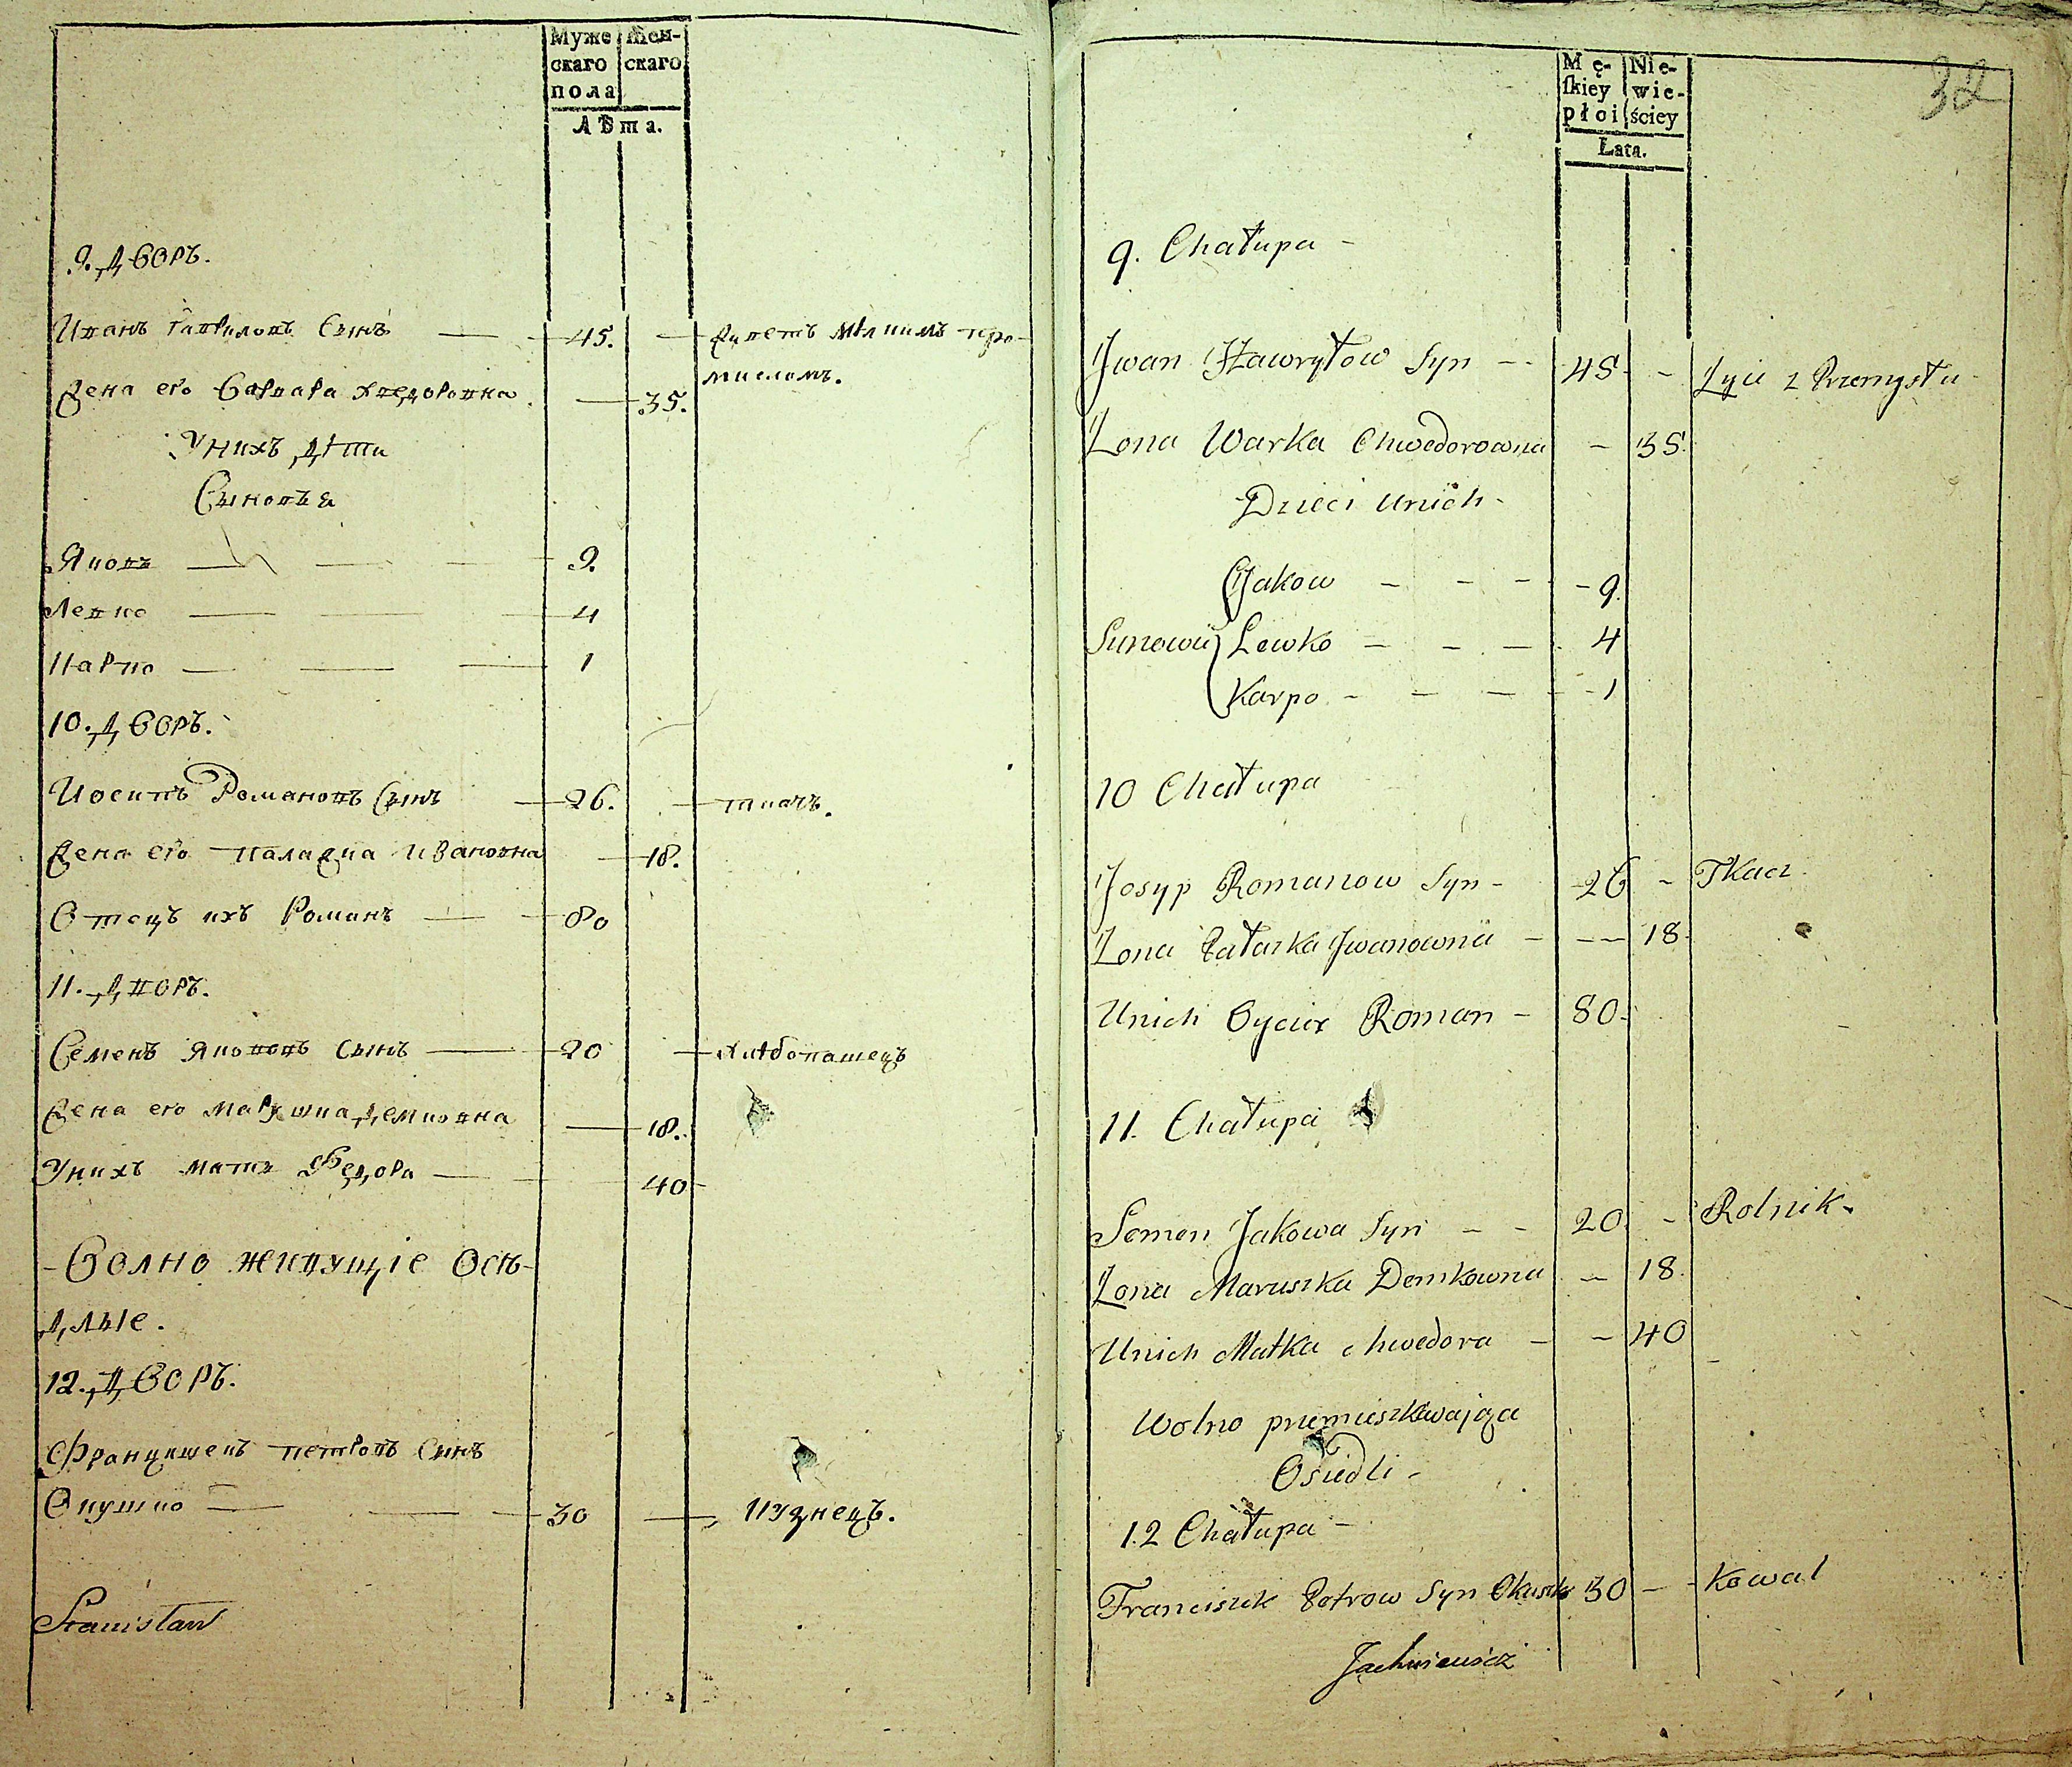 Муже скаго пола
Жен- скаго
Лѣта.
9. Дворъ.
Иванъ Гавриловъ Сынъ — 45. — живетъ мѣлкимъ про-
мисломъ.
Жена его Варвара Хведоровна — 35.
У нихъ дѣти
Сыновья
Яковъ — 9.
Левко — 4
Карпо — 1
10. Дворъ.
Иосипъ Романовъ Сынъ — 26. — ткачъ.
Жена его Палажка Ивановна — 18.
Отецъ ихъ Романъ — 80
11. Дворъ.
Семенъ Якововъ Сынъ — 20 — хлѣбопашецъ
Жена его Марушка Демковна — 18.
У нихъ мать Федора — 40
Волно живущіе Осѣ-
длые.
12. Дворъ.
Францишекъ Петровъ Сынъ
Окушко — 30 — Кузнецъ.
Stanisław
32
Mę- skiey płci
Nie- wie- ściey
Lata.
9. Chałupa -
Jwan Hawryłow Syn - 45 - Żyie z Przemysłu
Żona Warka Chwedorowna - 35.
Dzieci unich -
Jakow - 9.
Synowie Lewko - 4
Karpo - 1
10 Chałupa
Josyp Romanow Syn - 26 - Tkacz
Żona Pałaszka Jwanowna - 18
Unich Oyciec Roman - 80.
11. Chałupa
Semen Jakowa Syn - 20. - Rolnik.
Żona Maruszka Demkowna - 18.
Unich Matka Chwedora - 40
Wolno przemieszkiwaiące
Osiedli -
12 Chałupa -
Franciszek Petrow Syn Okuszko 30 - Kowal
Jachniewicz